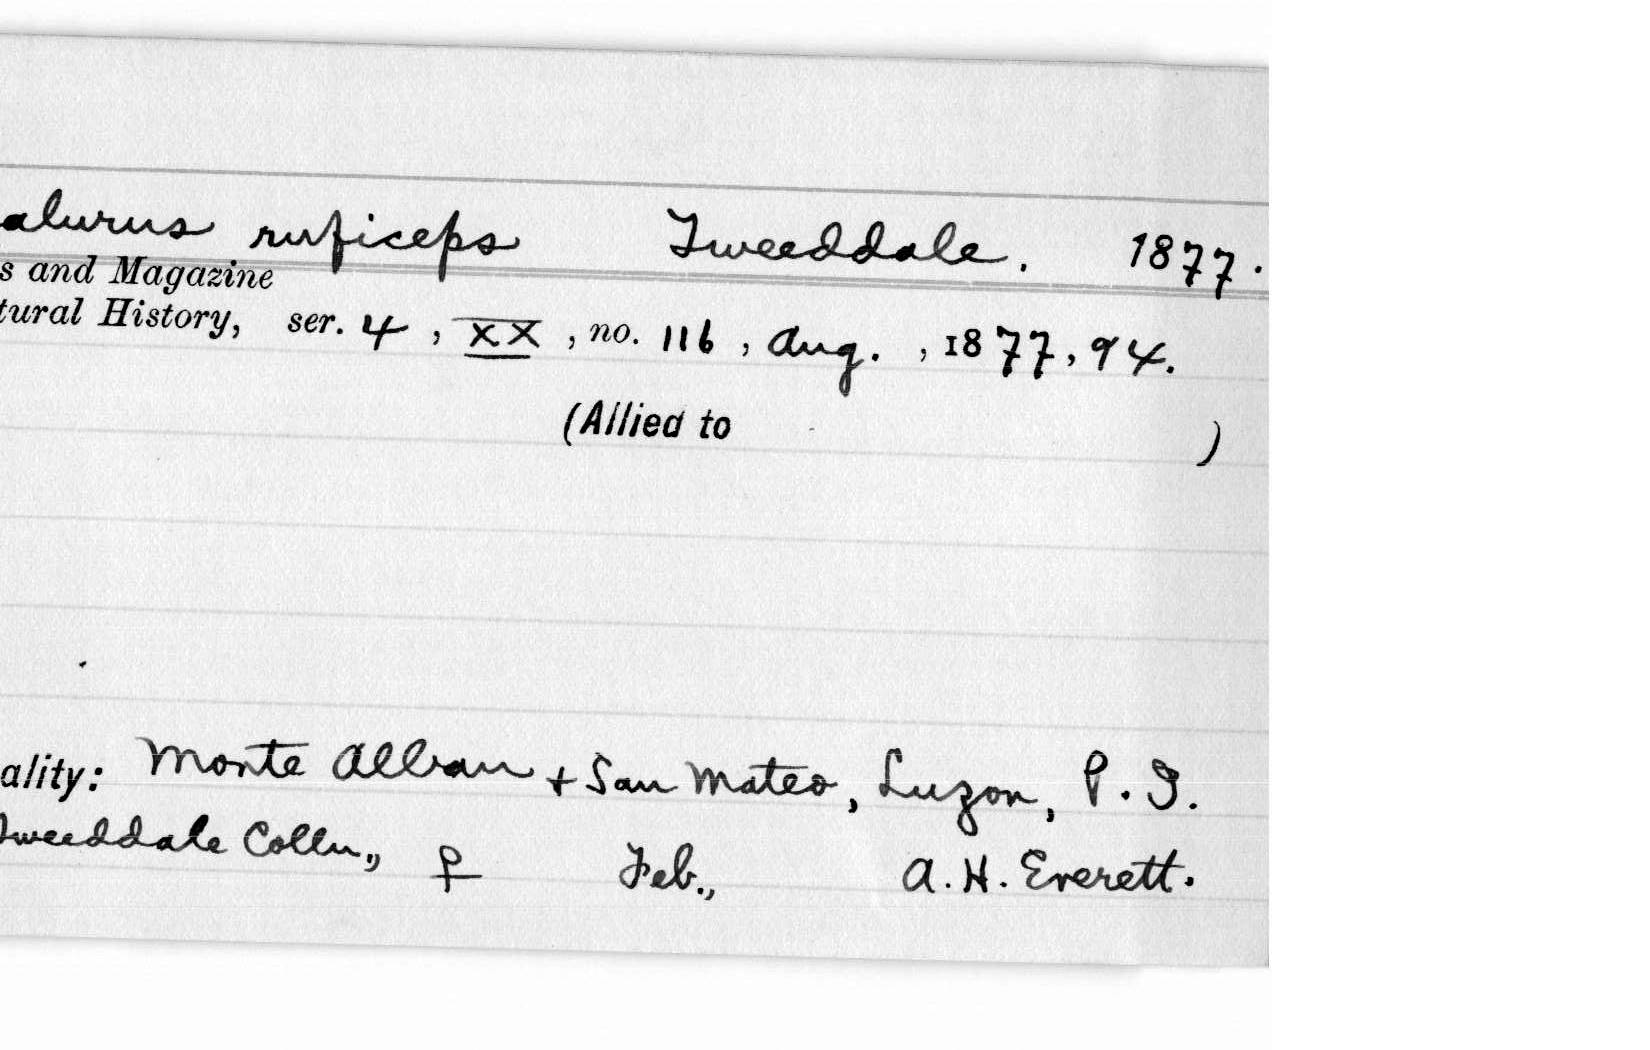 alurus ruficeps Tweeddale. 1877.
s and Magazine
tural History, ser. 4, XX, no. 116, Aug., 1877, 94.
(Allied to )
ality: Monte Alban + San Mateo, Luzon, P. I.
Tweeddale Colln., ♀ Feb., A. H. Everett.